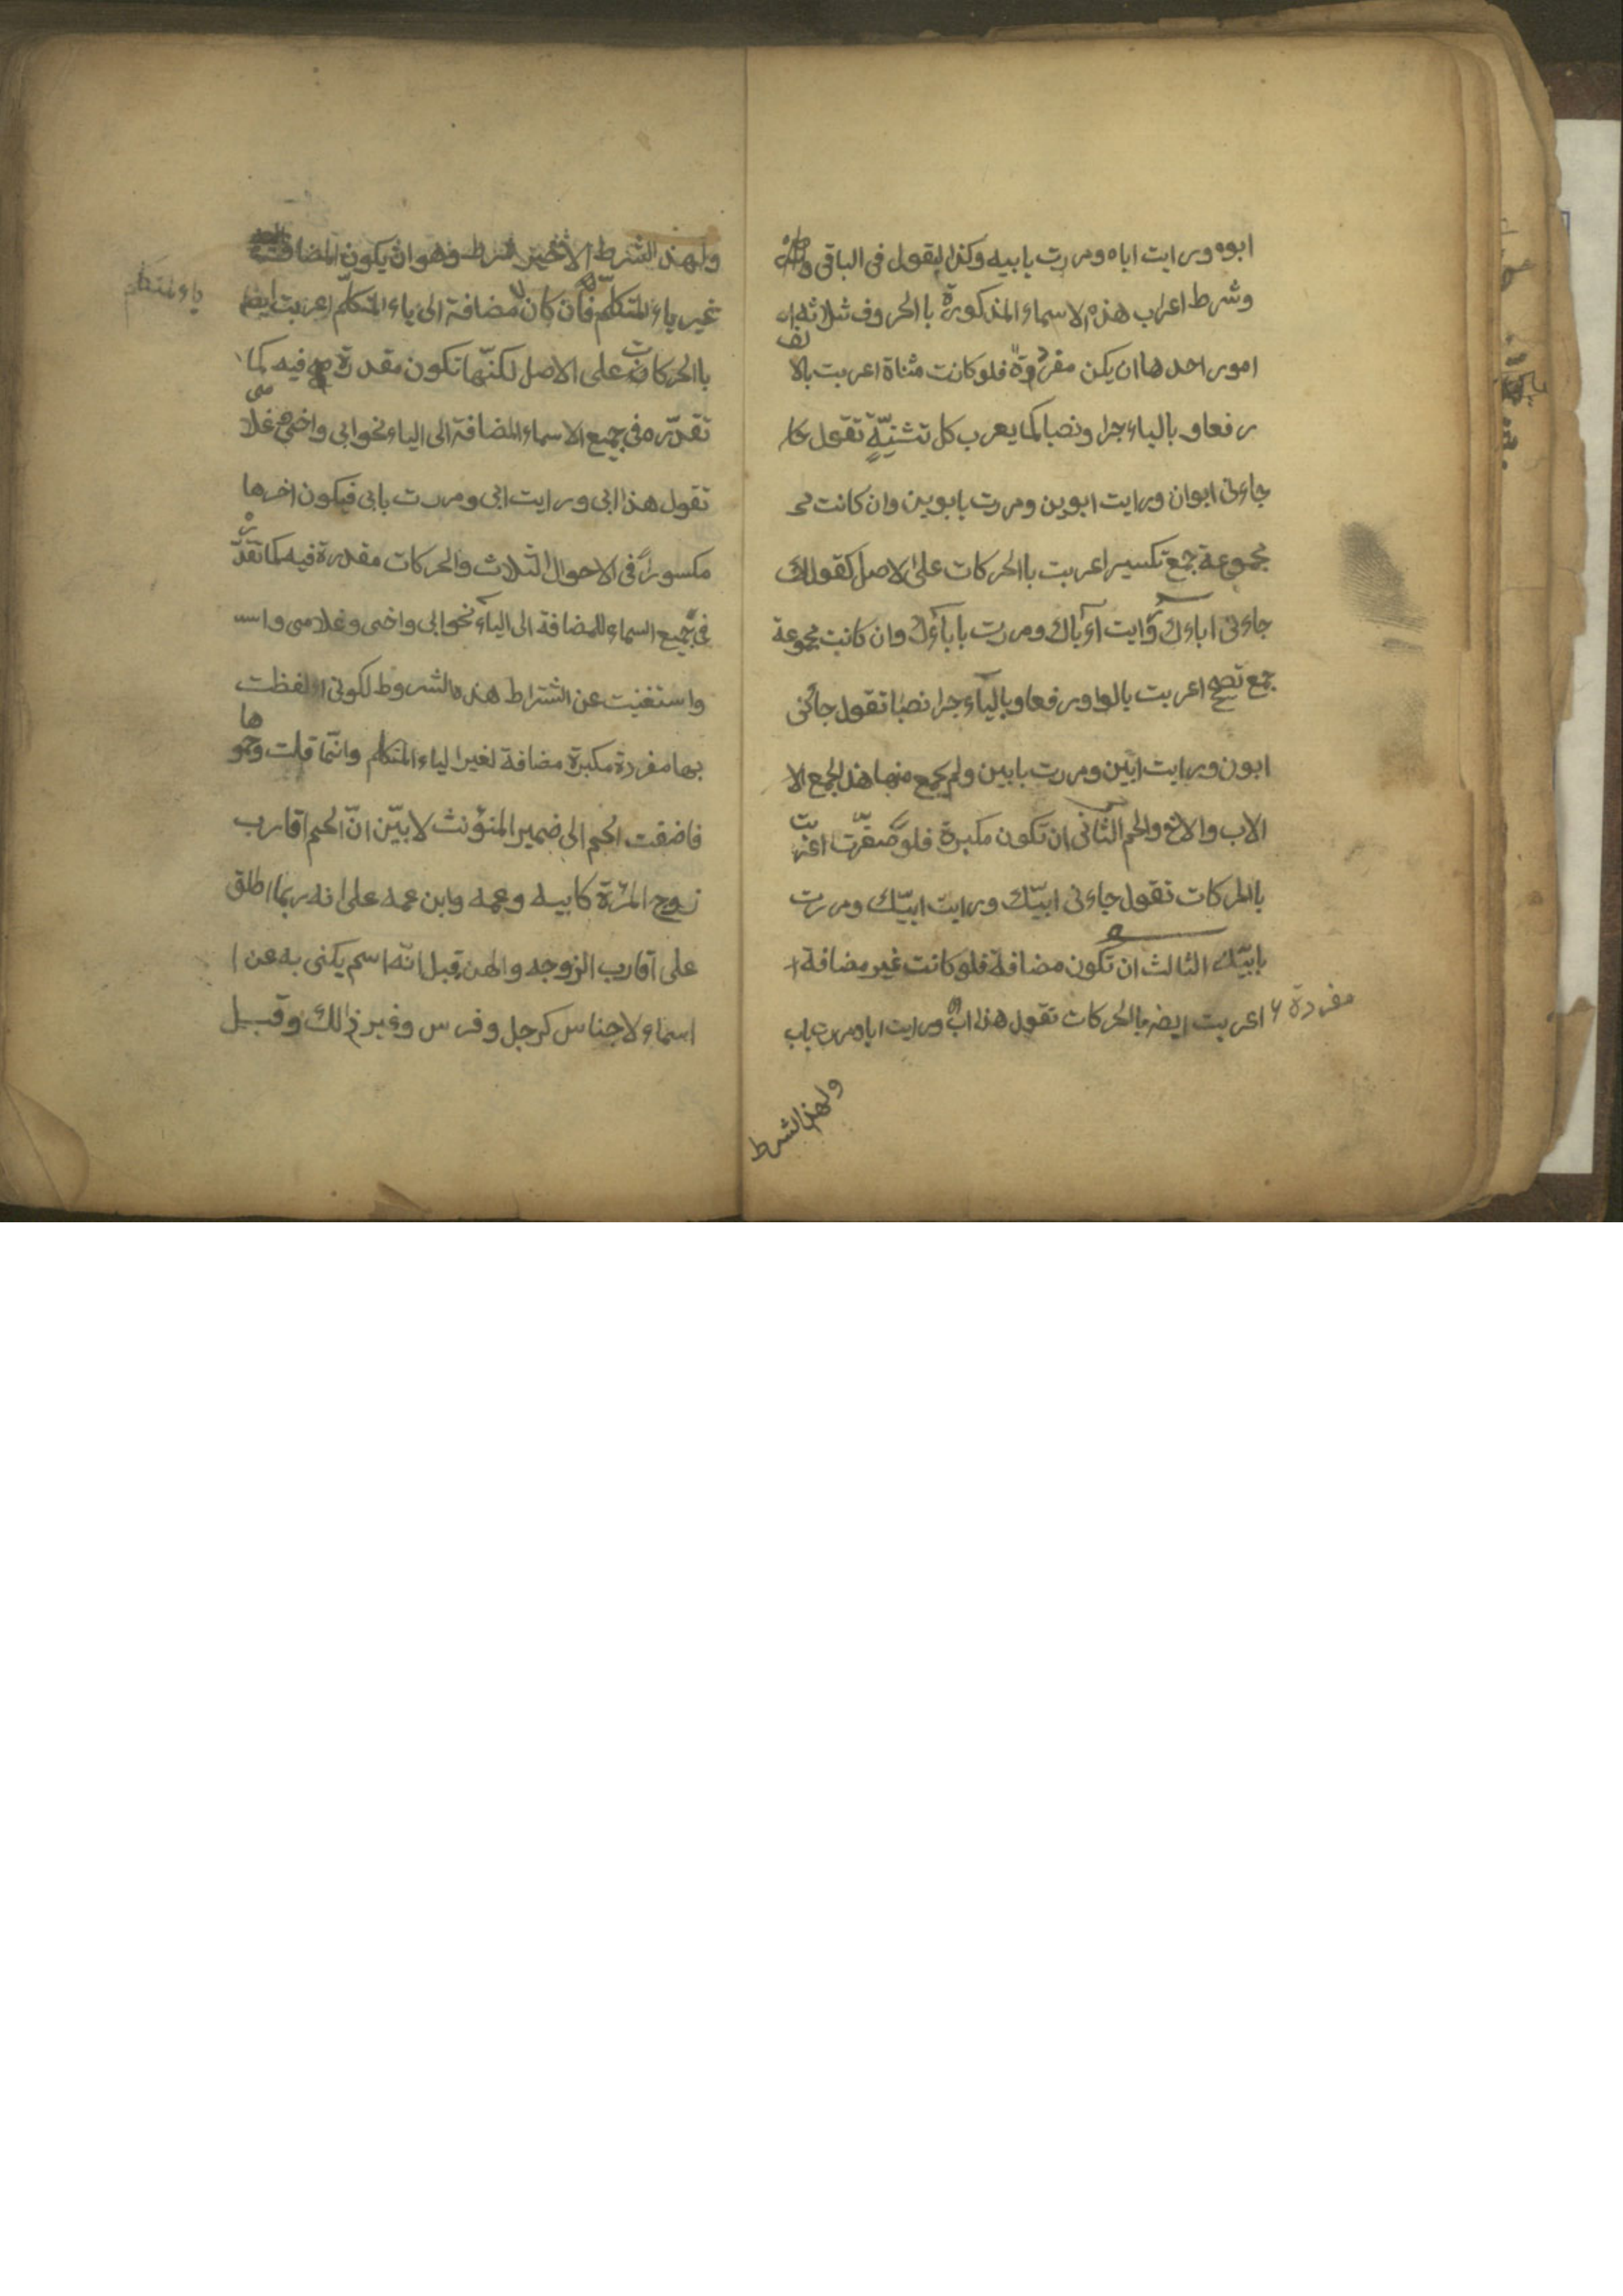 ابوه ورايت اباه ومررت بابيه وكذا القول فى الباقى
وشرط اعراب هذه الاسماء المذكورة باالحروف ثلاثة
امور احدها ان يكن مفردة فلو كانت مثناة اعربت بالالف
رفعا وبالياء جرا ونصبا كما يعرب كل تثنيّةٍ تقول
جاءنى ابوان ورايت ابوين ومررت بابوين وان كانت
مجموعة جمع تكسير اعربت باالحركات على الاصل كقولك
جاءنى اباءك ورايت آءباك ومررت باباءك وان كانت مجموعة
جمع تصحيح اعربت بالواو رفعا وبالياء جرا نصبا تقول جائنى
ابون ورايت ابين ومررت بابين ولم يجمع منها هذا الجمع الا
الاب والاخ والحم الثانى ان تكون مكبرة فلو صغرت اعربت
باالحركات تقول جاءنى ابيّك ورايت ابيّك ومررت
بابيّك الثالث ان تكون مضافة فلو كانت غير مضافة
مفردة اعربت ايضا بالحركات تقول هذا اب ورايت ابا ومررت باب
ولهذا الشرط
ولهذا الشرط الاخير شرط وهو ان يكون المضاف
ياء المتكلم
غير ياء المتكلّم فان كان مضافة الى ياء المتكلّم اعربت ايضا
باالحركات على الاصل لكنّها تكون مقدرة فيه كما
تقدّره فى جميع الاسماء المضافة الى الياء نحو ابى واخى غلامى
تقول هذا ابى ورايت ابى ومررت بابى فيكون اخرها
مكسوراً فى الاحوال الثلاث والحركات مقدرة فيه كما تقدّر
فى جميع اسماء المضافة الى الياء نحو ابى واخى وغلامى
واستغنيت عن اشتراط هذه الشروط لكونى لفظت
بها مفردة مكبرة مضافة لغير الياء المتكلم وانّما قلت وحموها
فاضفت الحم الى ضمير المنؤنث لابيّن انّ الحم اقارب
زوج المرْئة كابيه وعمه وابن عمه على انه ربما اطلق
على اقارب الزوجه والهن قبل انّه اسم يكنى به عن
اسماء لاجناس كرجل وفرس وغير ذالك وقيل